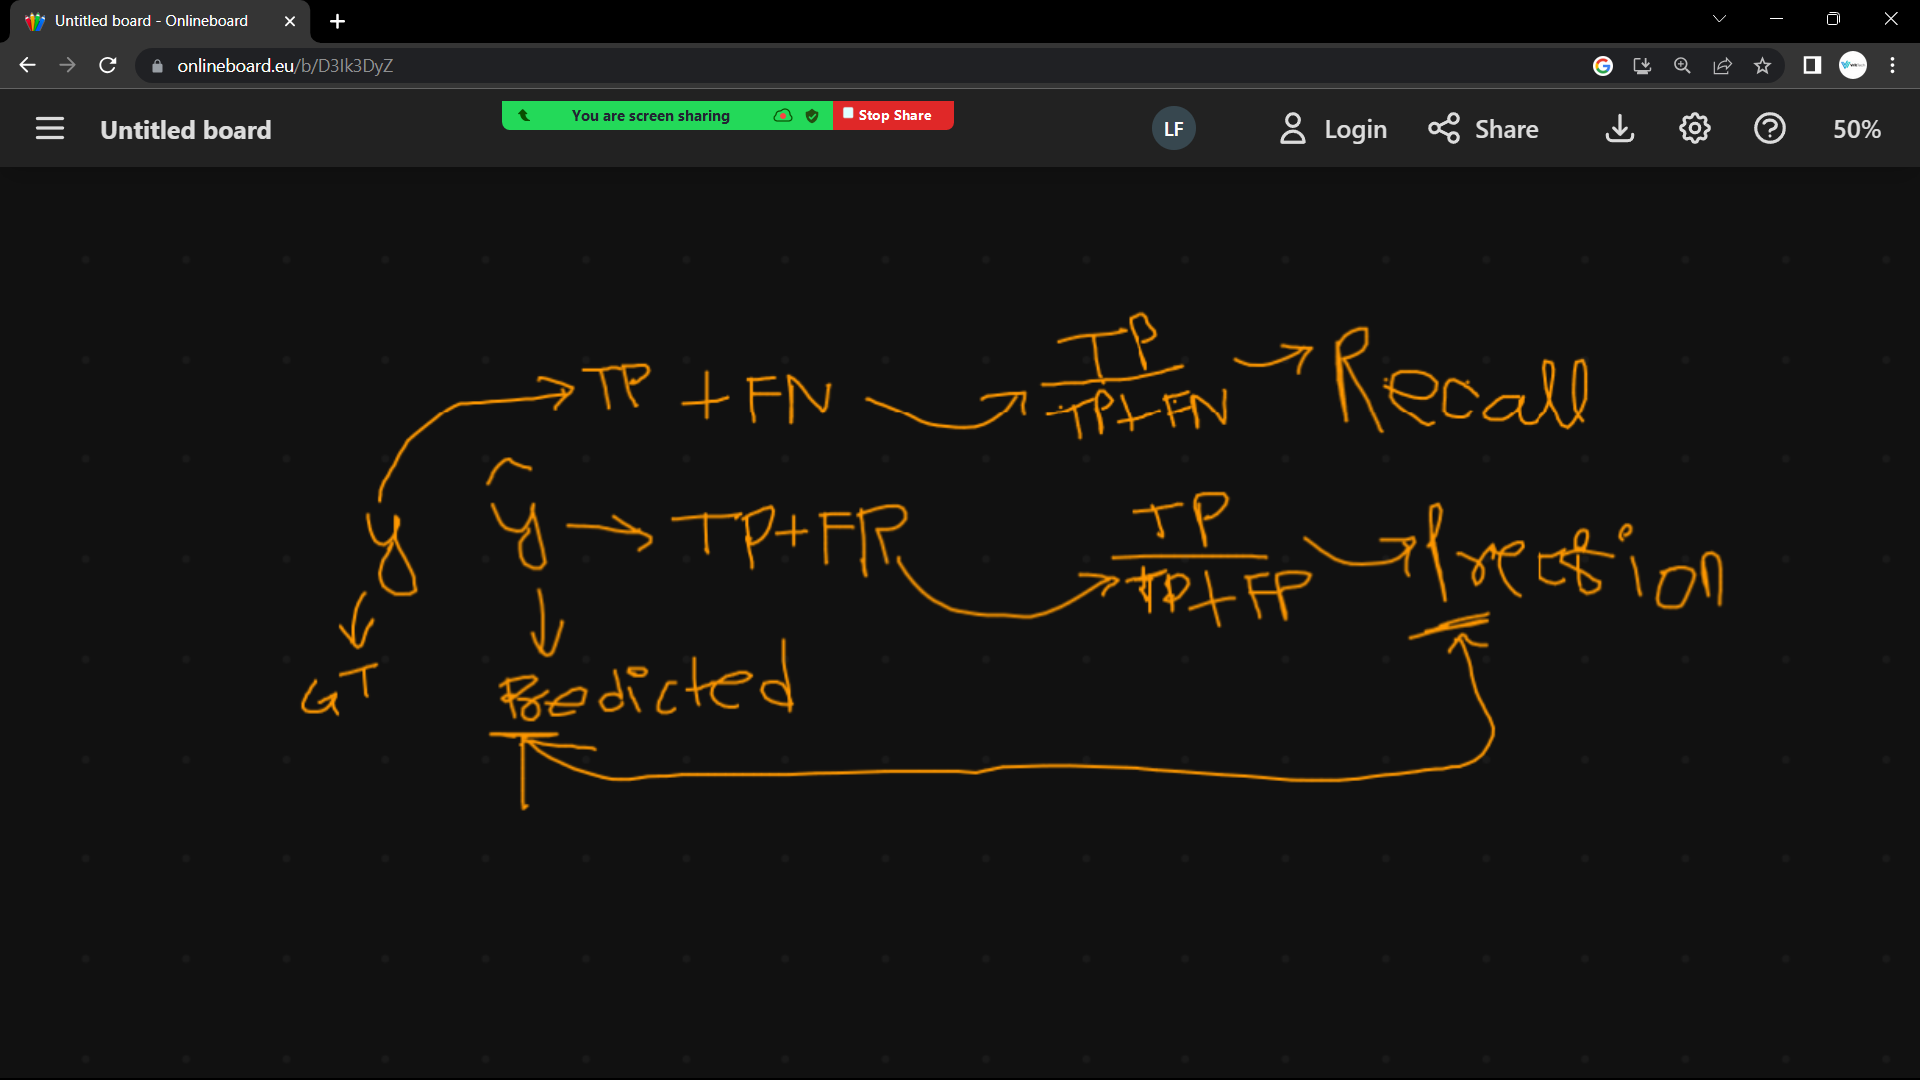 Untitled board - Onlineboard
onlineboard.eu/b/D3Ik3DyZ
Untitled board
You are screen sharing
Stop Share
LF
Login
Share
50%
TP + FN
TP
TP+FN
Recall
y
ŷ
TP+FP
TP
TP+FP
Precision
GT
Predicted